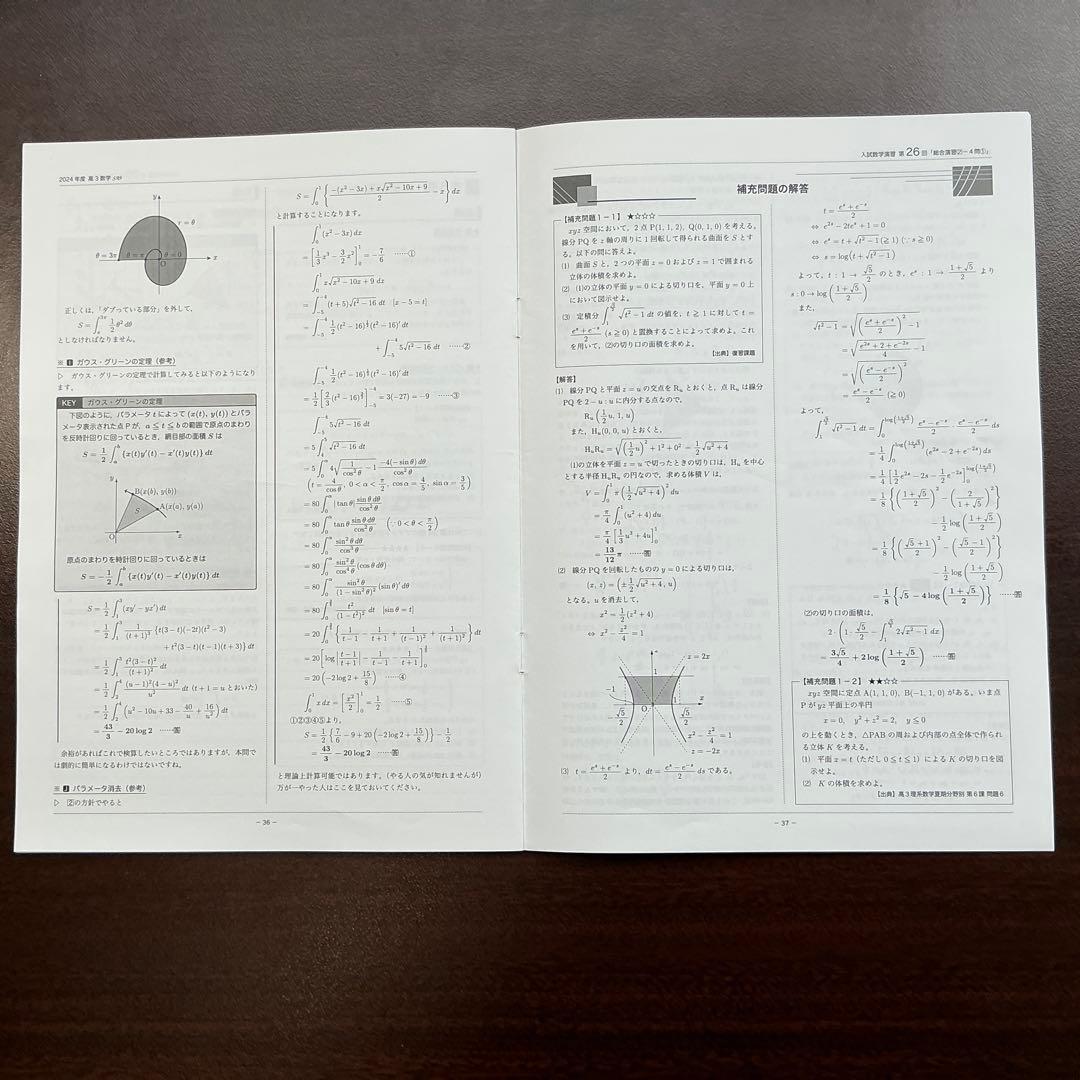 2024年度 高3数学 SAS
y
r = θ
θ = 3π
θ = π
θ = 0
O
x
正しくは,「ダブっている部分」を外して,
S = ∫_π^{3π} 1/2 θ² dθ
としなければなりません.
※ 1 ガウス・グリーンの定理(参考)
▷ ガウス・グリーンの定理で計算してみると以下のようになり
ます.
KEY ガウス・グリーンの定理
下図のように, パラメータ t によって (x(t), y(t)) とパラ
メータ表示された点 P が, a ≦ t ≦ b の範囲で原点のまわり
を反時計回りに回っているとき, 網目部の面積 S は
S = 1/2 ∫_a^b {x(t)y'(t) − x'(t)y(t)} dt
y
B(x(b), y(b))
S
A(x(a), y(a))
O
x
原点のまわりを時計回りに回っているときは
S = −1/2 ∫_a^b {x(t)y'(t) − x'(t)y(t)} dt
S = 1/2 ∫_1^3 (xy' − yx') dt
= 1/2 ∫_1^3 1/(t+1)³ {t(3−t)(−2t)(t²−3)
+ t²(3−t)(t−1)(t+3)} dt
= 1/2 ∫_1^3 t²(3−t)²/(t+1)² dt
= 1/2 ∫_2^4 (u−1)²(4−u)²/u² dt (t+1 = u とおいた)
= 1/2 ∫_2^4 (u² − 10u + 33 − 40/u + 16/u²) dt
= 43/3 − 20 log 2 ……答
余裕があればこれで検算したいところではありますが, 本問で
は劇的に簡単になるわけではないですね.
※ 2 パラメータ消去(参考)
▷ 2の方針でやると
S = ∫_0^1 {(−(x²−3x) + x√(x²−10x+9))/2 − x} dx
と計算することになります.
∫_0^1 (x² − 3x) dx
= [1/3 x³ − 3/2 x²]_0^1 = −7/6 ……①
∫_0^1 x√(x²−10x+9) dx
= ∫_{−5}^{−4} (t+5)√(t²−16) dt [x − 5 = t]
= ∫_{−5}^{−4} 1/2 (t²−16)^{1/2} (t²−16)' dt
+ ∫_{−5}^{−4} 5√(t²−16) dt ……②
∫_{−5}^{−4} 1/2 (t²−16)^{1/2} (t²−16)' dt
= 1/2 [2/3 (t²−16)^{3/2}]_{−5}^{−4} = 3(−27) = −9 ……③
∫_{−5}^{−4} 5√(t²−16) dt
= 5 ∫_4^5 √(t²−16) dt
(t = 4/cos θ, 0 < α < π/2, cos α = 4/5, sin α = 3/5)
= 80 ∫_0^α |tan θ| sin θ dθ/cos² θ
= 80 ∫_0^α tan θ sin θ dθ/cos² θ (∵ 0 < θ < π/2)
= 80 ∫_0^α sin² θ dθ/cos³ θ
= 80 ∫_0^α sin² θ/cos⁴ θ (cos θ dθ)
= 80 ∫_0^α sin² θ/(1 − sin² θ)² (sin θ)' dθ
= 80 ∫_0^{3/5} t²/(1−t²)² dt [sin θ = t]
= 20 ∫_0^{3/5} {1/(t−1) − 1/(t+1) + 1/(t−1)² + 1/(t+1)²} dt
= 20 [log |(t−1)/(t+1)| − 1/(t−1) − 1/(t+1)]_0^{3/5}
= 20 (−2 log 2 + 15/8) ……④
∫_0^1 x dx = [x²/2]_0^1 = 1/2 ……⑤
①②③④⑤より,
S = 1/2 {7/6 − 9 + 20 (−2 log 2 + 15/8)} − 1/2
= 43/3 − 20 log 2 ……答
と理論上計算可能ではあります.(やる人の気が知れませんが)
万が一やった人はここを見ておいてください.
− 36 −
入試数学演習 第26回「総合演習②−4問①」
補充問題の解答
【補充問題1−1】 ★☆☆☆
xyz 空間において, 2点 P(1, 1, 2), Q(0, 1, 0) を考える.
線分 PQ を z 軸の周りに1回転して得られる曲面を S とす
る. 以下の問に答えよ.
(1) 曲面 S と, 2つの平面 z = 0 および z = 1 で囲まれる
立体の体積を求めよ.
(2) (1)の立体の平面 y = 0 による切り口を, 平面 y = 0 上
において図示せよ.
(3) 定積分 ∫_1^{√5/2} √(t²−1) dt の値を, t ≧ 1 に対して t =
(e^s + e^{−s})/2 (s ≧ 0) と置換することによって求めよ. これ
を用いて, (2)の切り口の面積を求めよ.
【出典】復習課題
【解答】
(1) 線分 PQ と平面 z = u の交点を R_u とおくと, 点 R_u は線分
PQ を 2 − u : u に内分する点なので,
R_u (1/2 u, 1, u)
また, H_u(0, 0, u) とおくと,
H_uR_u = √((1/2 u)² + 1² + 0²) = 1/2 √(u²+4)
(1)の立体を平面 z = u で切ったときの切り口は, H_u を中心
とする半径 H_uR_u の円なので, 求める体積 V は,
V = ∫_0^1 π (1/2 √(u²+4))² du
= π/4 ∫_0^1 (u² + 4) du
= π/4 [1/3 u³ + 4u]_0^1
= 13/12 π ……答
(2) 線分 PQ を回転したものの y = 0 による切り口は,
(x, z) = (±1/2 √(u²+4), u)
となる. u を消去して,
x² = 1/4 (z² + 4)
⇔ x² − z²/4 = 1
z = 2x
1
−1
1
O
x
−√5/2
√5/2
x² − z²/4 = 1
z = −2x
(3) t = (e^s + e^{−s})/2 より, dt = (e^s − e^{−s})/2 ds である.
t = (e^s + e^{−s})/2
⇔ e^{2s} − 2te^s + 1 = 0
⇔ e^s = t + √(t²−1) (≧ 1) (∵ s ≧ 0)
⇔ s = log(t + √(t²−1))
よって, t : 1 → √5/2 のとき, e^s : 1 → (1+√5)/2 より
s : 0 → log ((1+√5)/2)
また,
√(t²−1) = √(((e^s + e^{−s})/2)² − 1)
= √((e^{2s} + 2 + e^{−2s})/4 − 1)
= √(((e^s − e^{−s})/2)²)
= (e^s − e^{−s})/2 (≧ 0)
よって,
∫_1^{√5/2} √(t²−1) dt = ∫_0^{log((1+√5)/2)} (e^s − e^{−s})/2 · (e^s − e^{−s})/2 ds
= 1/4 ∫_0^{log((1+√5)/2)} (e^{2s} − 2 + e^{−2s}) ds
= 1/4 [1/2 e^{2s} − 2s − 1/2 e^{−2s}]_0^{log((1+√5)/2)}
= 1/8 {((1+√5)/2)² − (2/(1+√5))²}
− 1/2 log ((1+√5)/2)
= 1/8 {((√5+1)/2)² − ((√5−1)/2)²}
− 1/2 log ((1+√5)/2)
= 1/8 {√5 − 4 log ((1+√5)/2)} ……答
(2)の切り口の面積は,
2 · (1 · √5/2 − ∫_1^{√5/2} 2√(x²−1) dx)
= 3√5/4 + 2 log ((1+√5)/2) ……答
【補充問題1−2】 ★★☆☆
xyz 空間に定点 A(1, 1, 0), B(−1, 1, 0) がある. いま点
P が yz 平面上の半円
x = 0, y² + z² = 2, y ≦ 0
の上を動くとき, △PAB の周および内部の点全体で作られ
る立体 K を考える.
(1) 平面 z = t (ただし 0 ≦ t ≦ 1) による K の切り口を図
示せよ.
(2) K の体積を求めよ.
【出典】高3理系数学夏期分野別 第6課 問題6
− 37 −